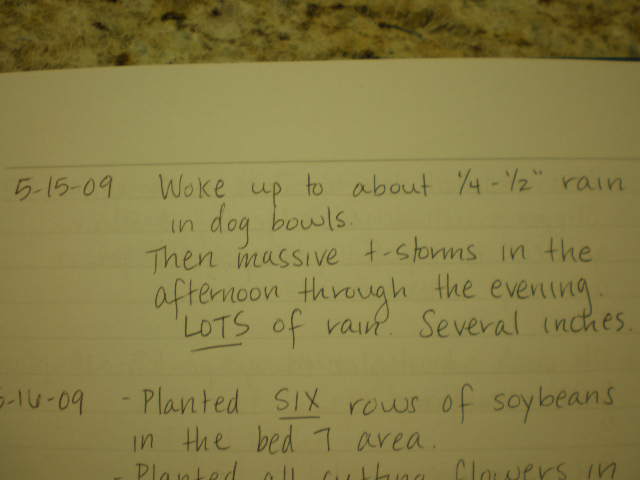 5-15-09 Woke up to about 1/4-1/2" rain
in dog bowls.
Then massive t-storms in the
afternoon through the evening.
LOTS of rain. Several inches.
5-16-09 - Planted SIX rows of soybeans
in the bed 7 area.
- Planted all cutting flowers in